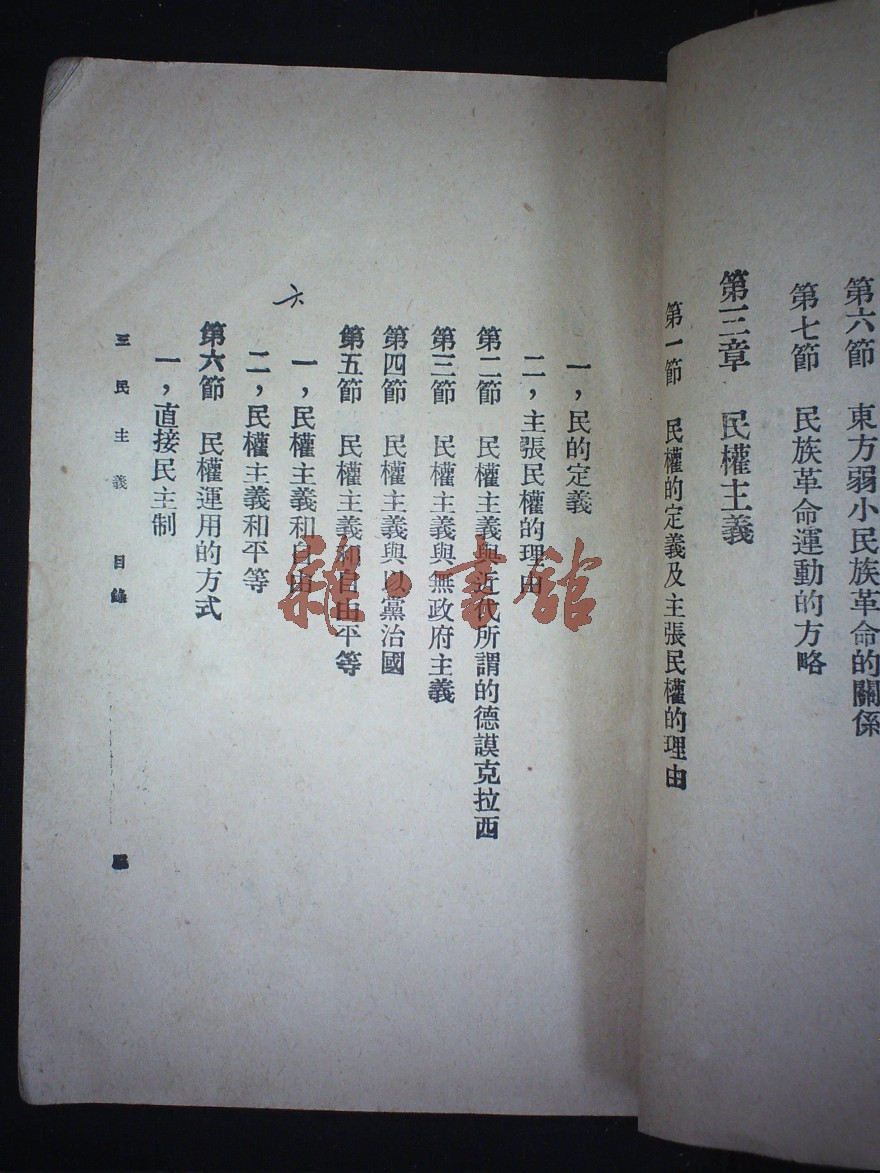 第六節　東方弱小民族革命的關係
第七節　民族革命運動的方略
第三章　民權主義
第一節　民權的定義及主張民權的理由
一，民的定義
二，主張民權的理由
第二節　民權主義與近代所謂的德謨克拉西
第三節　民權主義與無政府主義
第四節　民權主義與以黨治國
第五節　民權主義和自由平等
一，民權主義和自由
二，民權主義和平等
第六節　民權運用的方式
一，直接民主制
三民主義　目錄
六
雜·書館